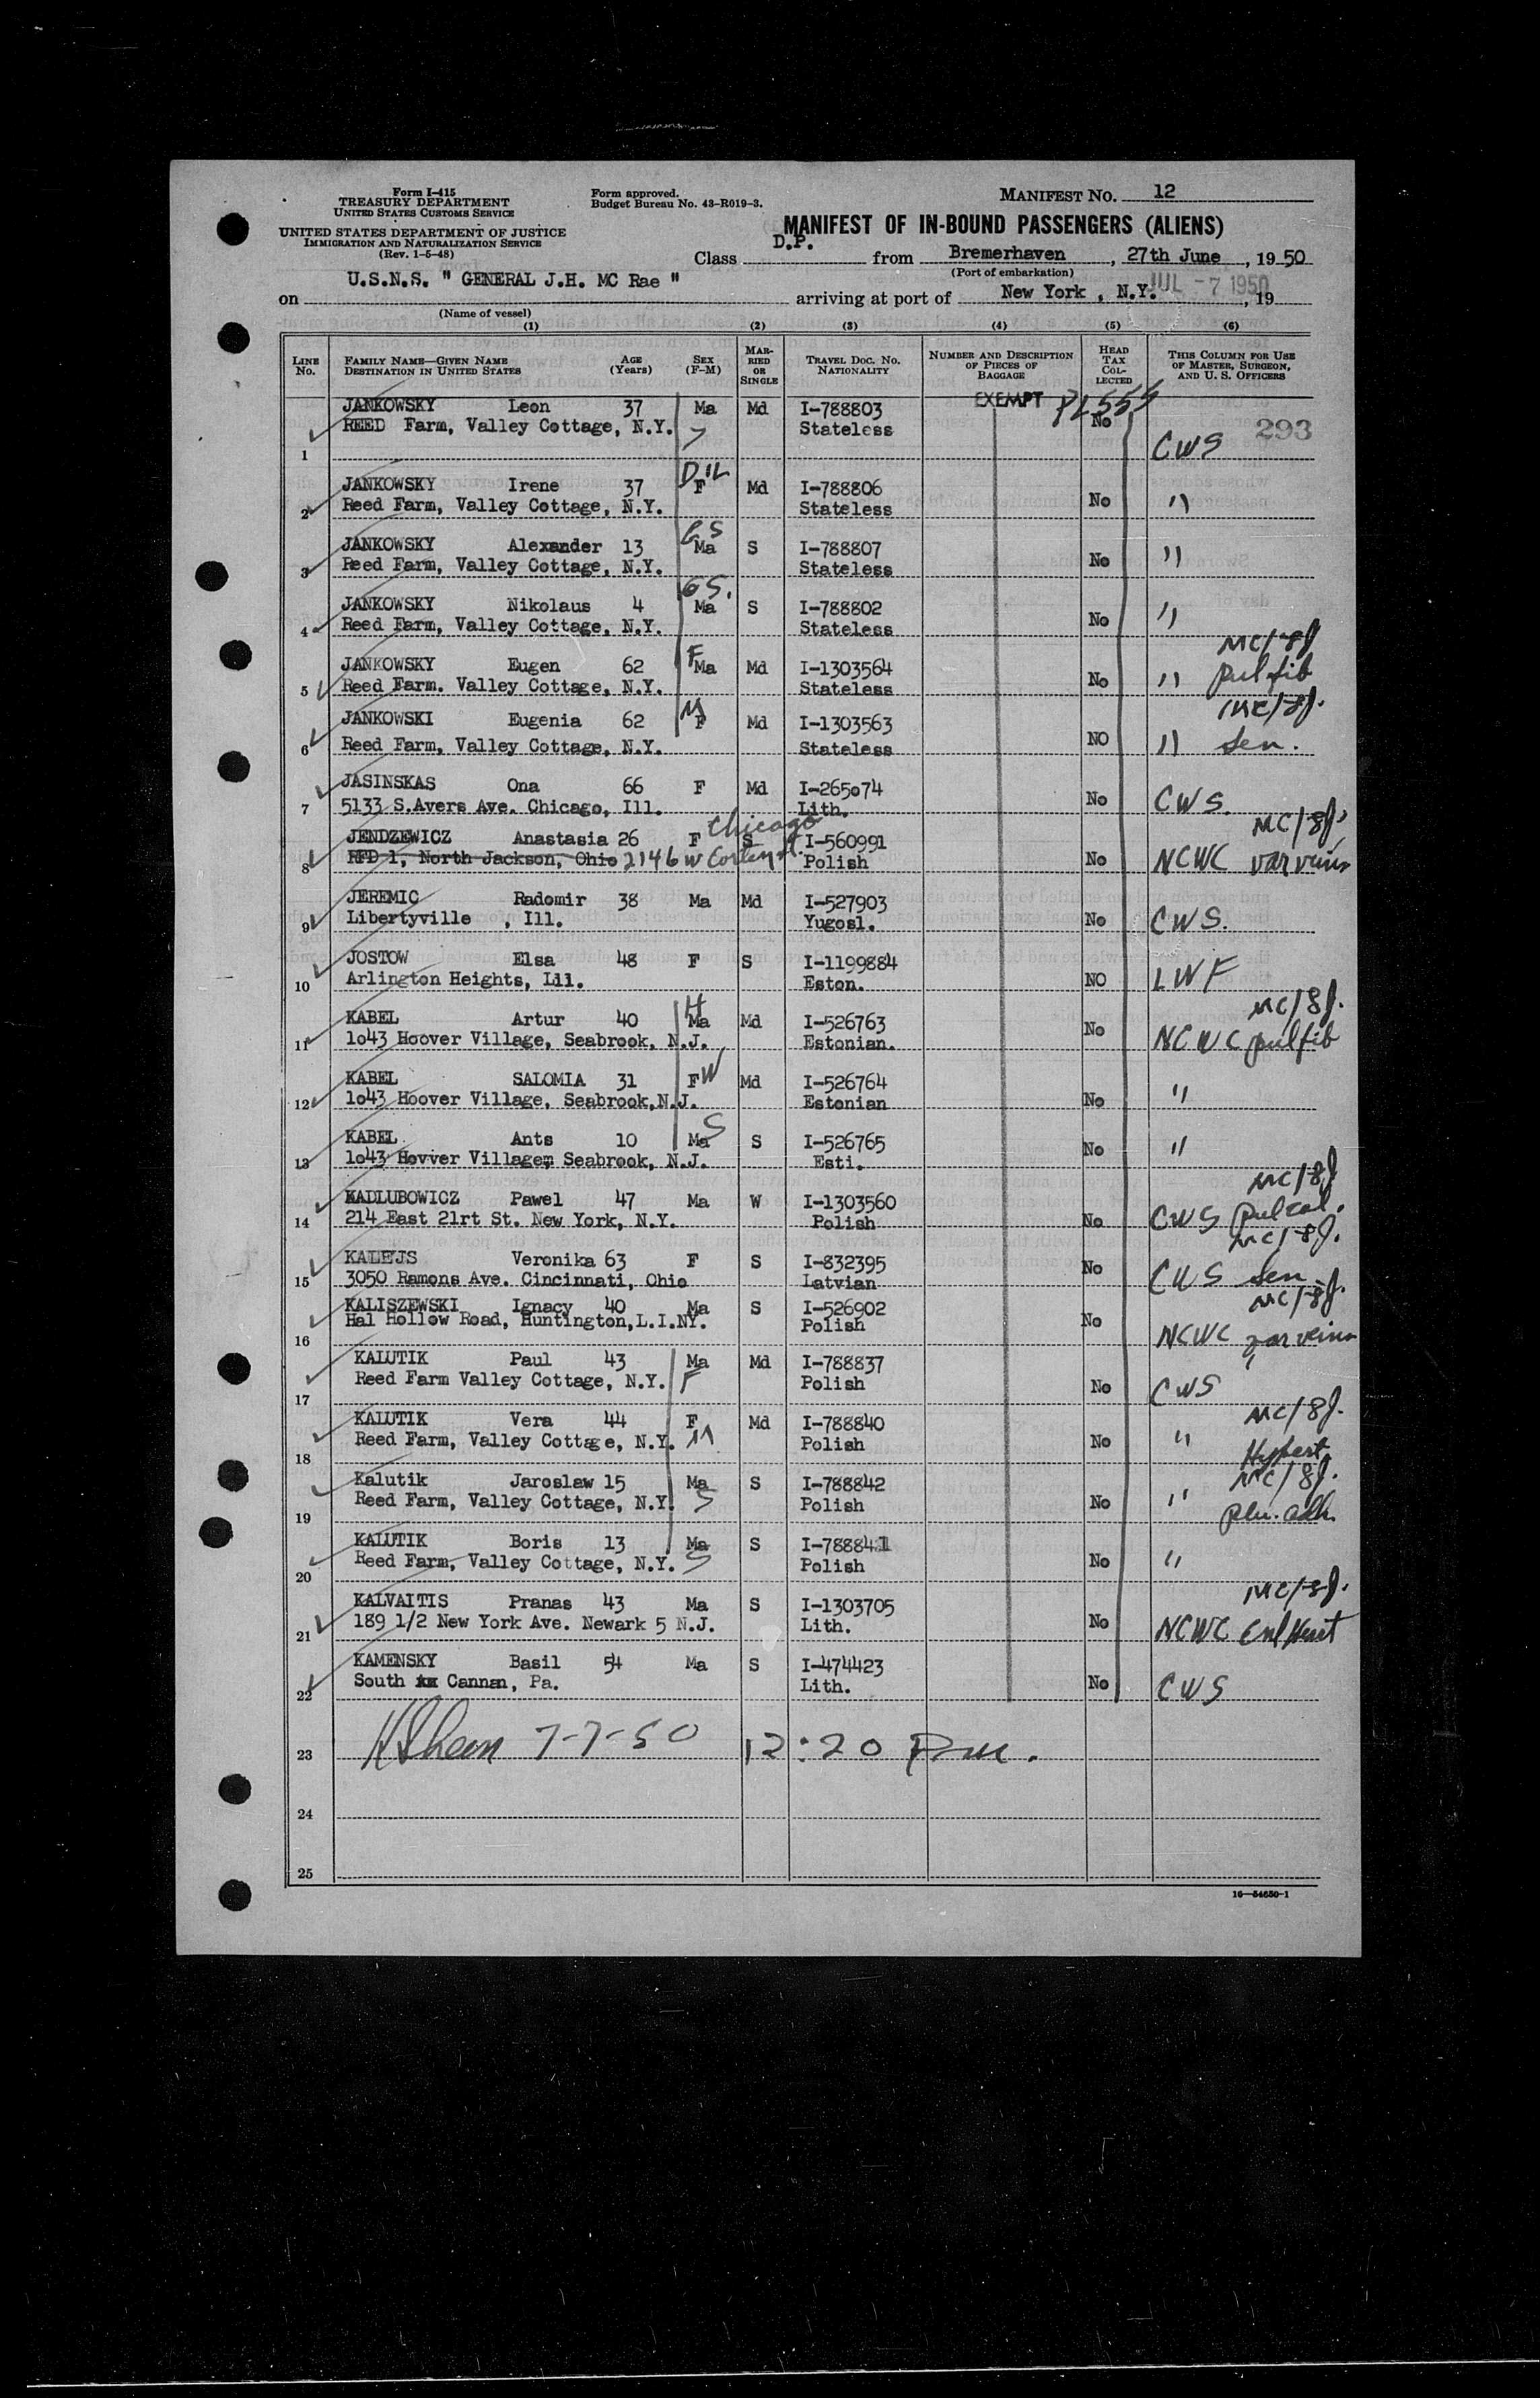 Form I-415
TREASURY DEPARTMENT
UNITED STATES CUSTOMS SERVICE
UNITED STATES DEPARTMENT OF JUSTICE
IMMIGRATION AND NATURALIZATION SERVICE
(Rev. 1-5-48)
Form approved.
Budget Bureau No. 43-R019-3.
MANIFEST NO. 12
MANIFEST OF IN-BOUND PASSENGERS (ALIENS)
Class D.P. from Bremerhaven, 27th June, 1950
(Port of embarkation)
on U.S.N.S. " GENERAL J.H. MC Rae " arriving at port of New York , N.Y. JUL -7 1950, 19
(Name of vessel)
(1) (2) (3) (4) (5) (6)
LINE NO. FAMILY NAME—GIVEN NAME DESTINATION IN UNITED STATES AGE (Years) SEX (F-M) MARRIED OR SINGLE TRAVEL DOC. NO. NATIONALITY NUMBER AND DESCRIPTION OF PIECES OF BAGGAGE HEAD TAX COLLECTED THIS COLUMN FOR USE OF MASTER, SURGEON, AND U. S. OFFICERS
EXEMPT PL555
293
JANKOWSKY Leon 37 Ma Md I-788803 No
REED Farm, Valley Cottage, N.Y. Stateless
1 CWS
JANKOWSKY Irene 37 F Md I-788806
2 Reed Farm, Valley Cottage, N.Y. Stateless No "
JANKOWSKY Alexander 13 Ma S I-788807
3 Reed Farm, Valley Cottage, N.Y. Stateless No "
JANKOWSKY Nikolaus 4 Ma S I-788802
4 Reed Farm, Valley Cottage, N.Y. Stateless No "
JANKOWSKY Eugen 62 F Ma Md I-1303564 MC/8J
5 Reed Farm. Valley Cottage, N.Y. Stateless No " pul fib
JANKOWSKI Eugenia 62 M F Md I-1303563 MC/8J.
6 Reed Farm, Valley Cottage, N.Y. Stateless NO " Sen.
JASINSKAS Ona 66 F Md I-265o74
7 5133 S.Avers Ave. Chicago, Ill. Lith. No CWS.
JENDZEWICZ Anastasia 26 F Chicago S I-560991 MC/8J.
8 RFD 1, North Jackson, Ohio 2146 W Polish No NCWC
JEREMIC Radomir 38 Ma Md I-527903
9 Libertyville , Ill. Yugosl. No CWS.
JOSTOW Elsa 48 F S I-1199884
10 Arlington Heights, Lll. Eston. NO LWF
KABEL Artur 40 H Ma Md I-526763 MC/8J.
11 1o43 Hoover Village, Seabrook, N.J. Estonian. No NCWC pul fib
KABEL SALOMIA 31 F W Md I-526764
12 1o43 Hoover Village, Seabrook,N.J. Estonian No "
KABEL Ants 10 Ma S S I-526765
13 1o43 Hovver Villagem Seabrook, N.J. Esti. No "
KADLUBOWICZ Pawel 47 Ma W I-1303560 MC/8J
14 214 East 21rt St. New York, N.Y. Polish No CWS
KALEJS Veronika 63 F S I-832395 MC/8J.
15 3050 Ramona Ave. Cincinnati, Ohio Latvian No CWS Sen
KALISZEWSKI Ignacy 40 Ma S I-526902 MC/8J.
16 Hal Hollow Road, Huntington,L.I.NY. Polish No NCWC
KALUTIK Paul 43 Ma Md I-788837
17 Reed Farm Valley Cottage, N.Y. F Polish No CWS
KALUTIK Vera 44 F Md I-788840 MC/8J.
18 Reed Farm, Valley Cottage, N.Y. M Polish No " Hypert.
Kalutik Jaroslaw 15 Ma S I-788842 MC/8J.
19 Reed Farm, Valley Cottage, N.Y. S Polish No " pleu. adh.
KALUTIK Boris 13 Ma S I-788841
20 Reed Farm, Valley Cottage, N.Y. S Polish No "
KALVAITIS Pranas 43 Ma S I-1303705 MC/8J.
21 189 1/2 New York Ave. Newark 5 N.J. Lith. No NCWC Enl Heart
KAMENSKY Basil 54 Ma S I-474423
22 South Cannan, Pa. Lith. No CWS
23 7-7-50 12:20 Pm.
24
25
16—54650-1